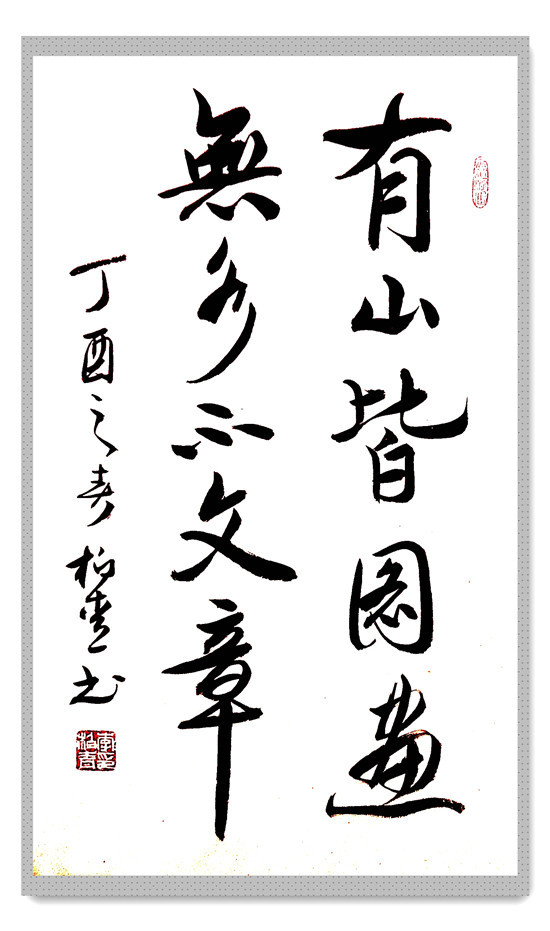 有山皆圖畫
無水不文章
丁酉之春柏书